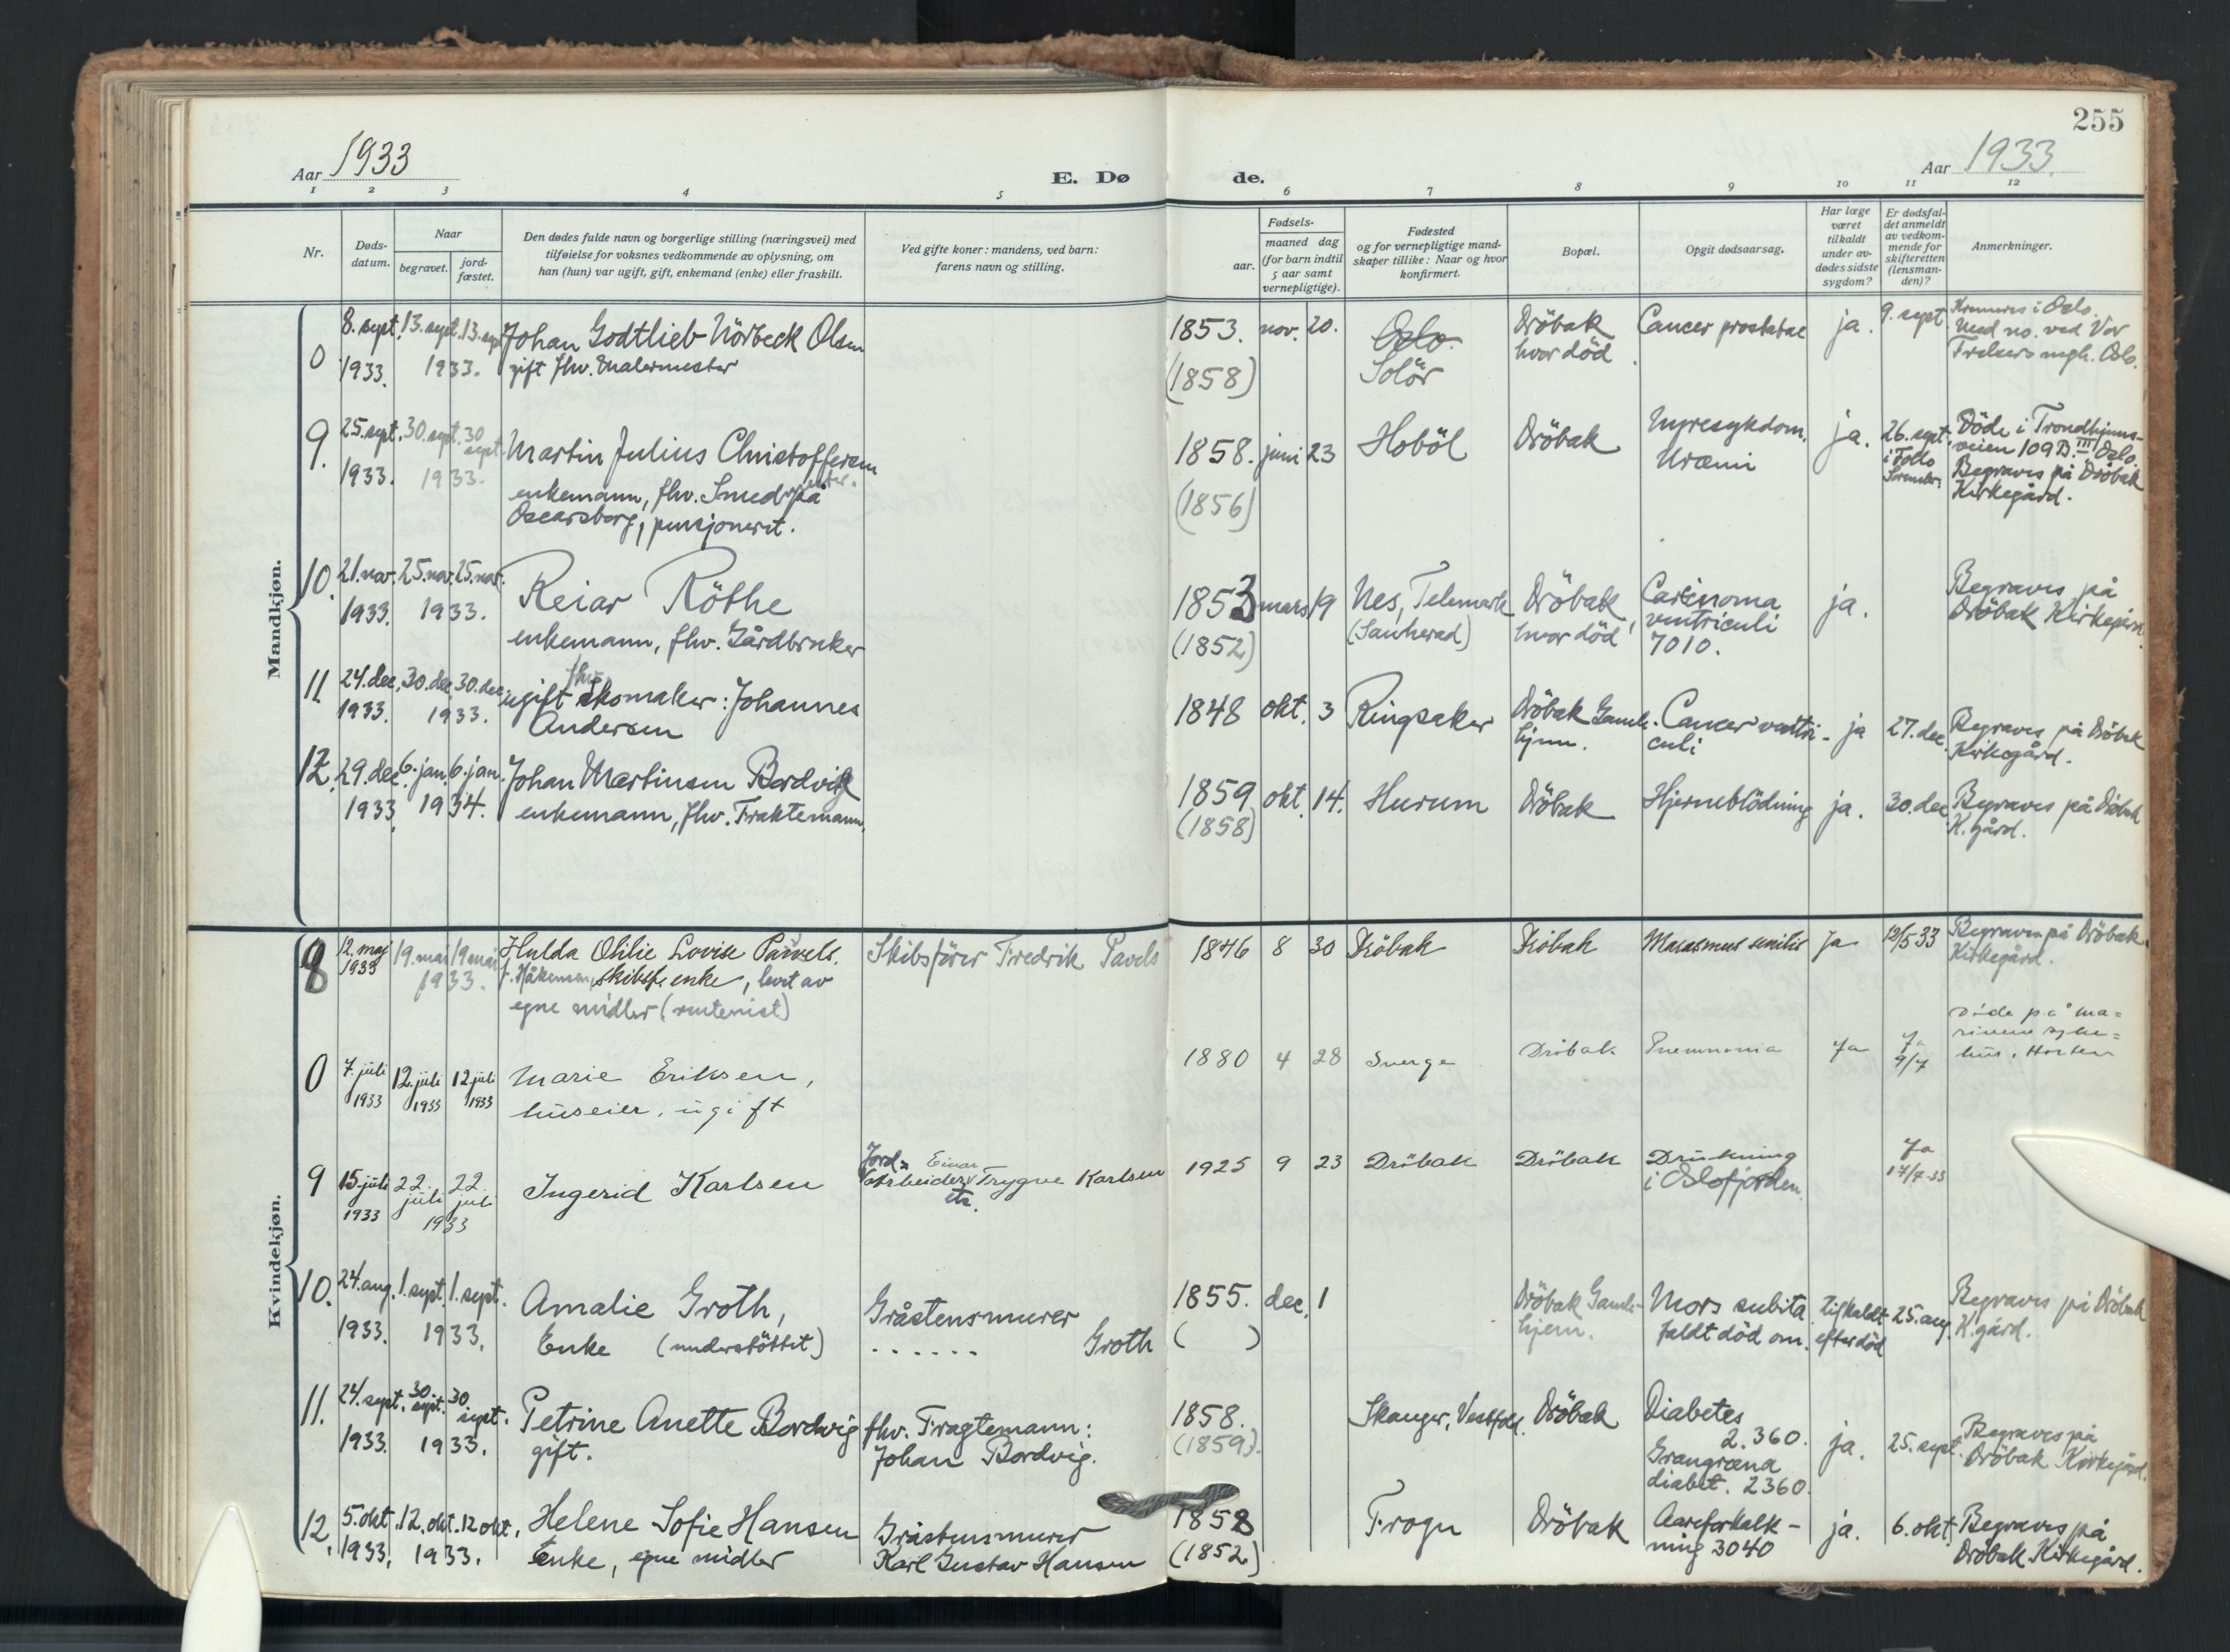 255
Aar 1933
E. Dø
de.
Aar 1933.
1 2 3 4 5 6 7 8 9 10 11 12
Nr.
Døds-
datum.
Naar
begravet.
jord-
fæstet.
Den dødes fulde navn og borgerlige stilling (næringsvei) med
tilføielse for voksnes vedkommende av oplysning, om
han (hun) var ugift, gift, enkemand (enke) eller fraskilt.
Ved gifte koner: mandens, ved barn:
farens navn og stilling.
Fødsels-
aar.
maaned dag
(for barn indtil
5 aar samt
vernepligtige).
Fødested
og for vernepligtige mand-
skaper tillike: Naar og hvor
konfirmert.
Bopæl.
Opgit dødsaarsag.
Har læge
været
tilkaldt
under av-
dødes sidste
sygdom?
Er dødsfal-
det anmeldt
av vedkom-
mende for
skifteretten
(lensman-
den)?
Anmerkninger.
Mandkjøn.
0
8. sept. 13. sept. 13. sept
1933. 1933.
Johan Godtlieb Nörbeck Olsen
gift fhv. Malermester
1853. nov. 20.
(1858)
Oslo.
Solör
Dröbak
hvor död.
Cancer prostatae
ja.
9. sept.
Kremeres i Oslo.
Med no. ved Vor
Frelsers mgh. Oslo.
9.
25. sept. 30. sept. 30 sept.
1933. 1933.
Martin Julius Christoffersen
enkemann, fhv. Smed på
Oscarsborg, pensjonert.
1858. juni 23
(1856)
Hoböl
Dröbak
Nyresykdom.
Uræmi
ja.
26. sept.
i Follo
Sorenskr.
Döde i Trondhjems-
veien 109 B. III Oslo.
Begraves på Dröbak
Kirkegård.
10.
21. nov. 25. nov. 25. nov.
1933. 1933.
Reiar Röthe
enkemann, fhv. Gårdbruker
1853 mars 19
(1852)
Nes, Telemark
(Sauherad)
Dröbak,
hvor död
Carcinoma
ventriculi
7010.
ja.
Begraves på
Dröbak Kirkegård.
11.
24. dec. 30. dec. 30. dec.
1933. 1933.
fhv.
ugift Skomaker: Johannes
Andersen
1848 okt. 3
Ringsaker
Dröbak Gamle-
hjem.
Cancer ventri-
culi
ja
27. dec.
Begraves på Dröbak
Kirkegård.
12.
29. dec. 6. jan. 6. jan.
1933. 1934.
Johan Martinsen Bordvik
enkemann, fhv. Fraktemann.
1859. okt. 14.
(1858)
Hurum
Dröbak
Hjerneblödning
ja.
30. dec.
Begraves på Dröbak
K. gård.
Kvindekjøn.
8
12. maj 19. mai 19 mai
1933 1933.
Hulda Otilie Lovise Pavels.
f. Håkensen, skibsf. enke, levet av
egne midler (rentenist)
Skibsförer Fredrik Pavels
1846 8 30
Dröbak
Dröbak
Marasmus senilis
Ja
12/5 33
Begraves på Dröbak
Kirkegård.
0
7. juli 12. juli 12 juli
1933 1933 1933
Marie Eriksen,
huseier, ugift
1880 4 28
Sverge
Dröbak
Pneumonia
Ja
Ja
9/7
Döde på ma=
rinens syke=
hus, Horten
9
15. juli 22. juli 22. juli
1933 1933
Ingerid Karlsen
Jord=
arbeider Einar Trygve Karlsen
1925 9 23
Dröbak
Dröbak
Drukning
i Oslofjorden.
Ja
17/7-33
10.
24. aug. 1. sept. 1. sept.
1933. 1933.
Amalie Groth,
Enke (understöttet)
Gråstensmurer
...... Groth
1855. dec. 1
( )
Dröbak Gamle-
hjem.
Mors subita
faldt död om.
tilkaldt
efter död
25. aug.
Begraves på Dröbak
K. gård.
11.
24. sept. 30. sept. 30 sept.
1933. 1933.
Petrine Anette Bordvig
gift.
fhv. Fragtemann:
Johan Bordvig.
1858.
(1859).
Skauger, Vestfold.
Dröbak
Diabetes
2.360.
Grangræna
diabet. 2360.
ja.
25. sept.
Begraves på
Dröbak Kirkegård.
12.
5. okt. 12. okt. 12 okt.
1933. 1933.
Helene Sofie Hansen
Enke, egne midler
Gråstensmurer
Karl Gustav Hansen
1858
(1852)
Frogn
Dröbak
Aareforkalk-
ning 3040
ja.
6. okt.
Begraves på
Dröbak Kirkegård.